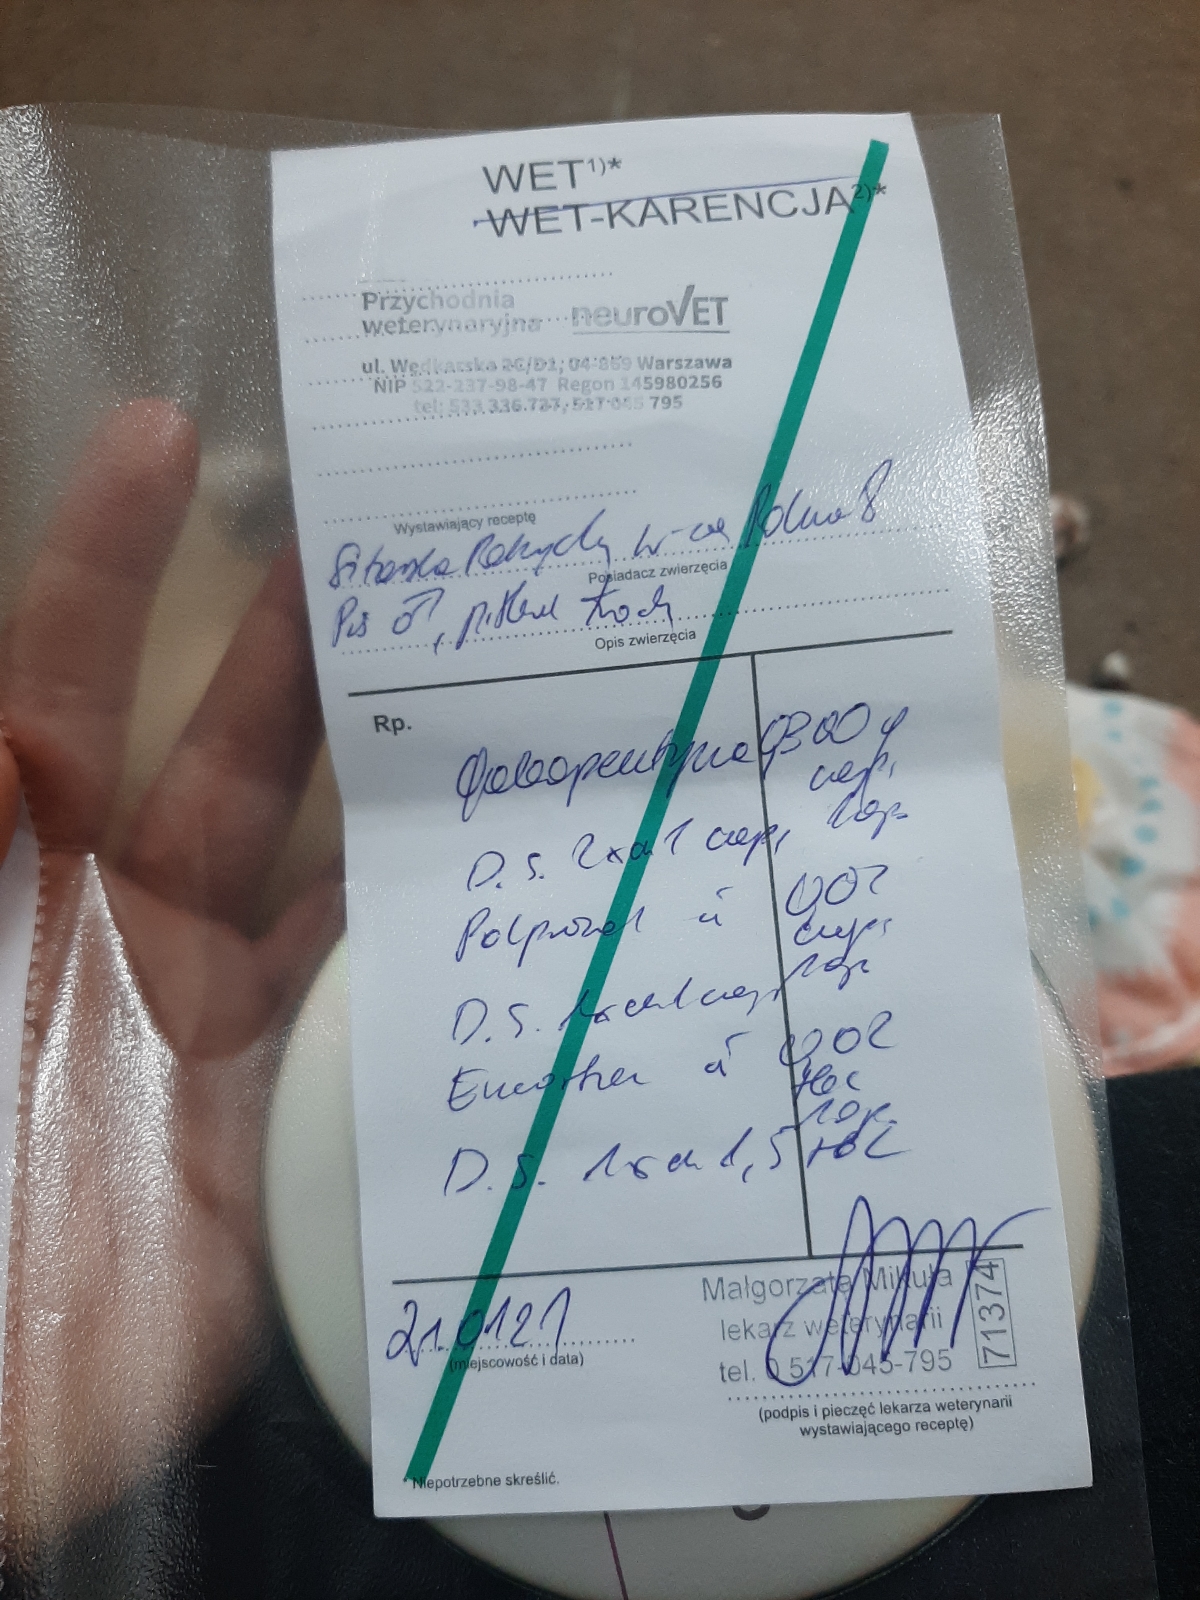 WET1)*
WET-KARENCJA2)*
Przychodnia
weterynaryjna neuroVET
ul. Wędkarska 04-869 Warszawa
NIP 522-237-98-47 Regon 145980256
tel: 795
Wystawiający receptę
W-wa Polna 8
Posiadacz zwierzęcia
Pies ♂,
Opis zwierzęcia
Rp.
Gabapentyna 0300
D. S. 2x d 1 caps,
Polprazol à 002
caps,
D. S. 1x d 1 caps,
Encorton à 002
D. S. 1x d 1,5 tabl
21.0121
(miejscowość i data)
Małgorzata Mikuła
lekarz weterynarii
tel. 0 517-045-795
71374
(podpis i pieczęć lekarza weterynarii
wystawiającego receptę)
* Niepotrzebne skreślić.